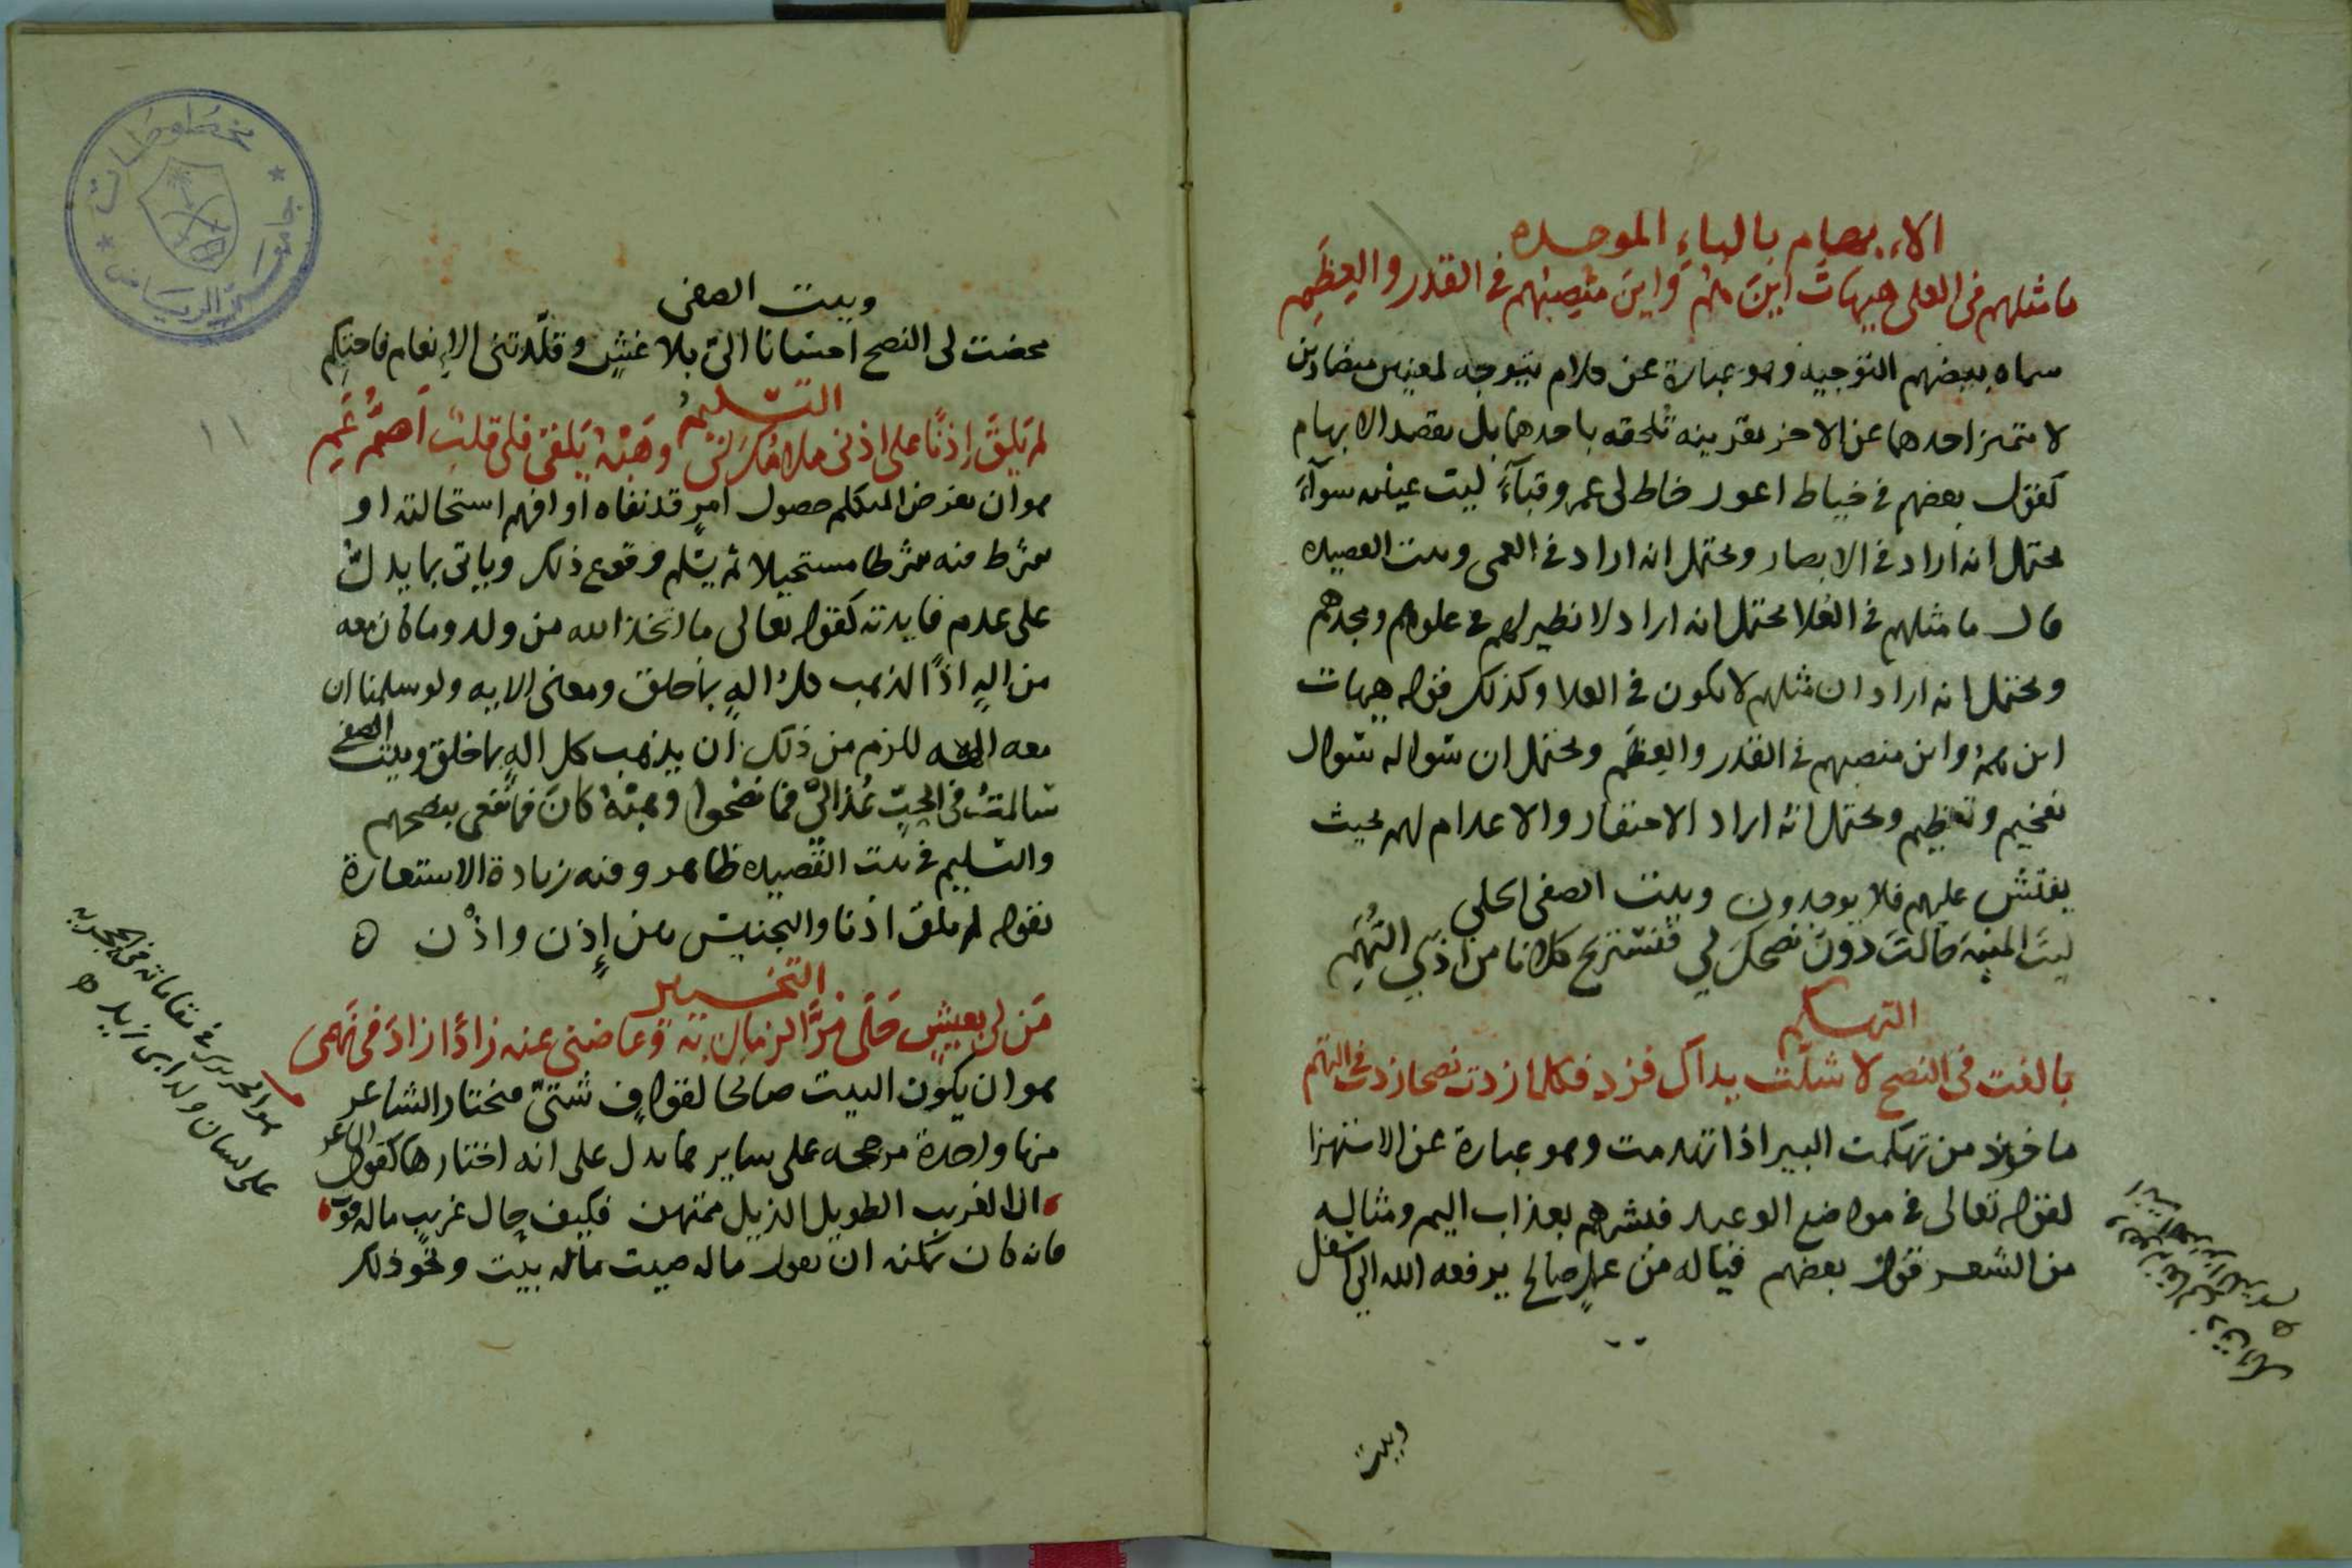 الابهام بالباء الموحده
ما مثلهم فى العلى هيهات اين هُمُ وَاين منصبهم فى القدر والعِظَمِ
سماه بعضهم التوجيه وهو عبارة عن كلام يتوجه لمعنيين متضادين
لا يتميز احدهما عن الاخر بقرينه تلحقه باحدهما بل بقصد الابهام
كقول بعضهم فى خياط اعور خاط لى عمرو قبآءً ليت عينيه سوآءً
يحتمل انه اراد فى الابصار ويحتمل انه اراد فى العمى وبيت القصيده
قال ما مثلهم فى العلا يحتمل انه اراد لا نظير لهم فى علوهم ومجدهم
ويحتمل انه اراد ان مثلهم لا يكون فى العلا وكذلك قوله هيهات
اين همُ واين منصبهم فى القدر والعِظَمِ ويحتمل ان سواله سوال
تفخيم وتعظيم ويحتمل انه اراد الاحتقار والاعدام لهم بحيث
يفتش عليهم فلا يوجدون وبيت الصفى الحلى
ليتَ المنيةَ حالتْ دونَ نصحكَ لى فنستريح كلانا من اذى التُهَمِ
التهكم
بالغت فى النصح لا شلّت يداك فزد فكلما زدت نصحا زدت فى التهم
ماخوذ من تهكمت البير اذا تهدمت وهو عبارة عن الاستهزا
كقوله تعالى فى مواضع الوعيد فبشرهم بعذاب اليم ومثاله
من الشعر قول بعضهم فيا له من عملٍ صالح يرفعه الله الى اسفل
وبيت
وبيت الصفى
محضت لى النصح احسانا الىّ بلا غشٍ وقلّدتنى الإنعام فاحتكم
التسليم
لم تَلقَ إذنًا على اذنى ملامُكَ لى وهَبْهُ يَلقى فلى قلبٌ اَصمُّ عَمِ
هو ان يفرض المتكلم حصول امرٍ قد نفاه او افهم استحالته او
شرط فيه شرطا مستحيلا ثم يسلم وقوع ذلك وياتى بما يدل
على عدم فايدته كقوله تعالى ما اتخذ الله من ولد وما كان معه
من الهٍ اذًا لذهب كل الهٍ بما خلق ومعنى الايه ولو سلمنا ان
معه الهه للزم من ذلك ان يذهب كل الهٍ بما خلق وبيت الصفى
سالمتُ فى الحبّ عُذالى فما نصحوا وهبْهُ كانَ فما نفعى بنصحهم
والتسليم فى بيت القصيده ظاهر وفيه زيادة الاستعارة
بقوله لم تلق اذنا والتجنيس بين إذن واذْن ٥
التخيير
مَن لى بعيشٍ حَلَى مَرَّ الزمان به وعاضنى عنه زادًا زادَ فى نَهَمى
هو ان يكون البيت صالحا لقوافٍ شتىّ فيختار الشاعر
منها واحدة مرجحه على سايرها يدل على انه اختارها كقول الشاعر
ان الغريب الطويل الذيل ممتهن فكيف حال غريبٍ ماله قوت
فانه كان يمكنه ان يقول ماله صيت ماله بيت ونحو ذلك
هو الحريرى فى مقاماته فى الحجريه
على لسان ولد ابى زيد ه
مخطوطات
جامعة الرياض
١١